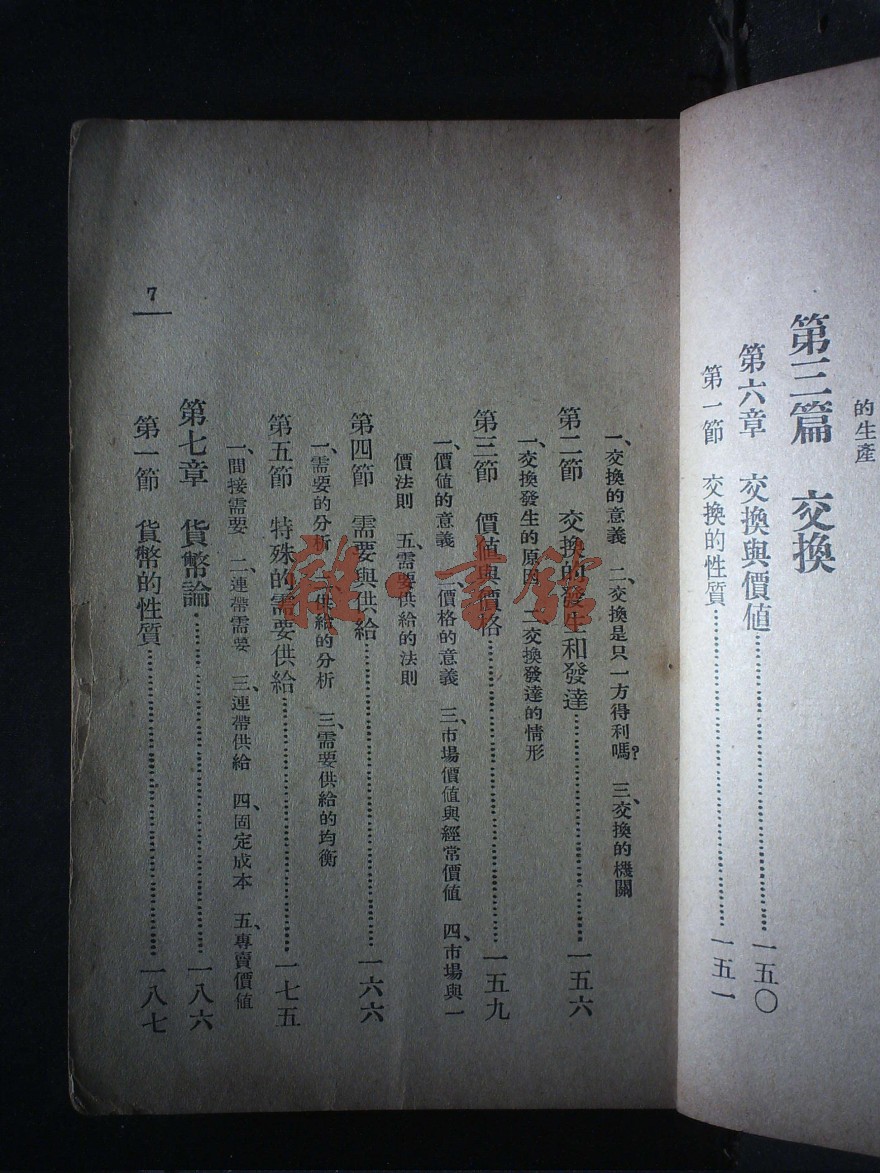 的生產
第三篇　交換
第六章　交換與價值……一五〇
第一節　交換的性質……一五一
一、交換的意義　二、交換是只一方得利嗎？　三、交換的機關
第二節　交換的發生和發達……一五六
一、交換發生的原因　二、交換發達的情形
第三節　價值與價格……一五九
一、價值的意義　二、價格的意義　三、市場價值與經常價值　四、市場與一
價法則　五、需要供給的法則
第四節　需要與供給……一六六
一、需要的分析　二、供給的分析　三、需要供給的均衡
第五節　特殊的需要供給……一七五
一、間接需要　二、連帶需要　三、連帶供給　四、固定成本　五、專賣價值
第七章　貨幣論……一八六
第一節　貨幣的性質……一八七
7
雜·書館